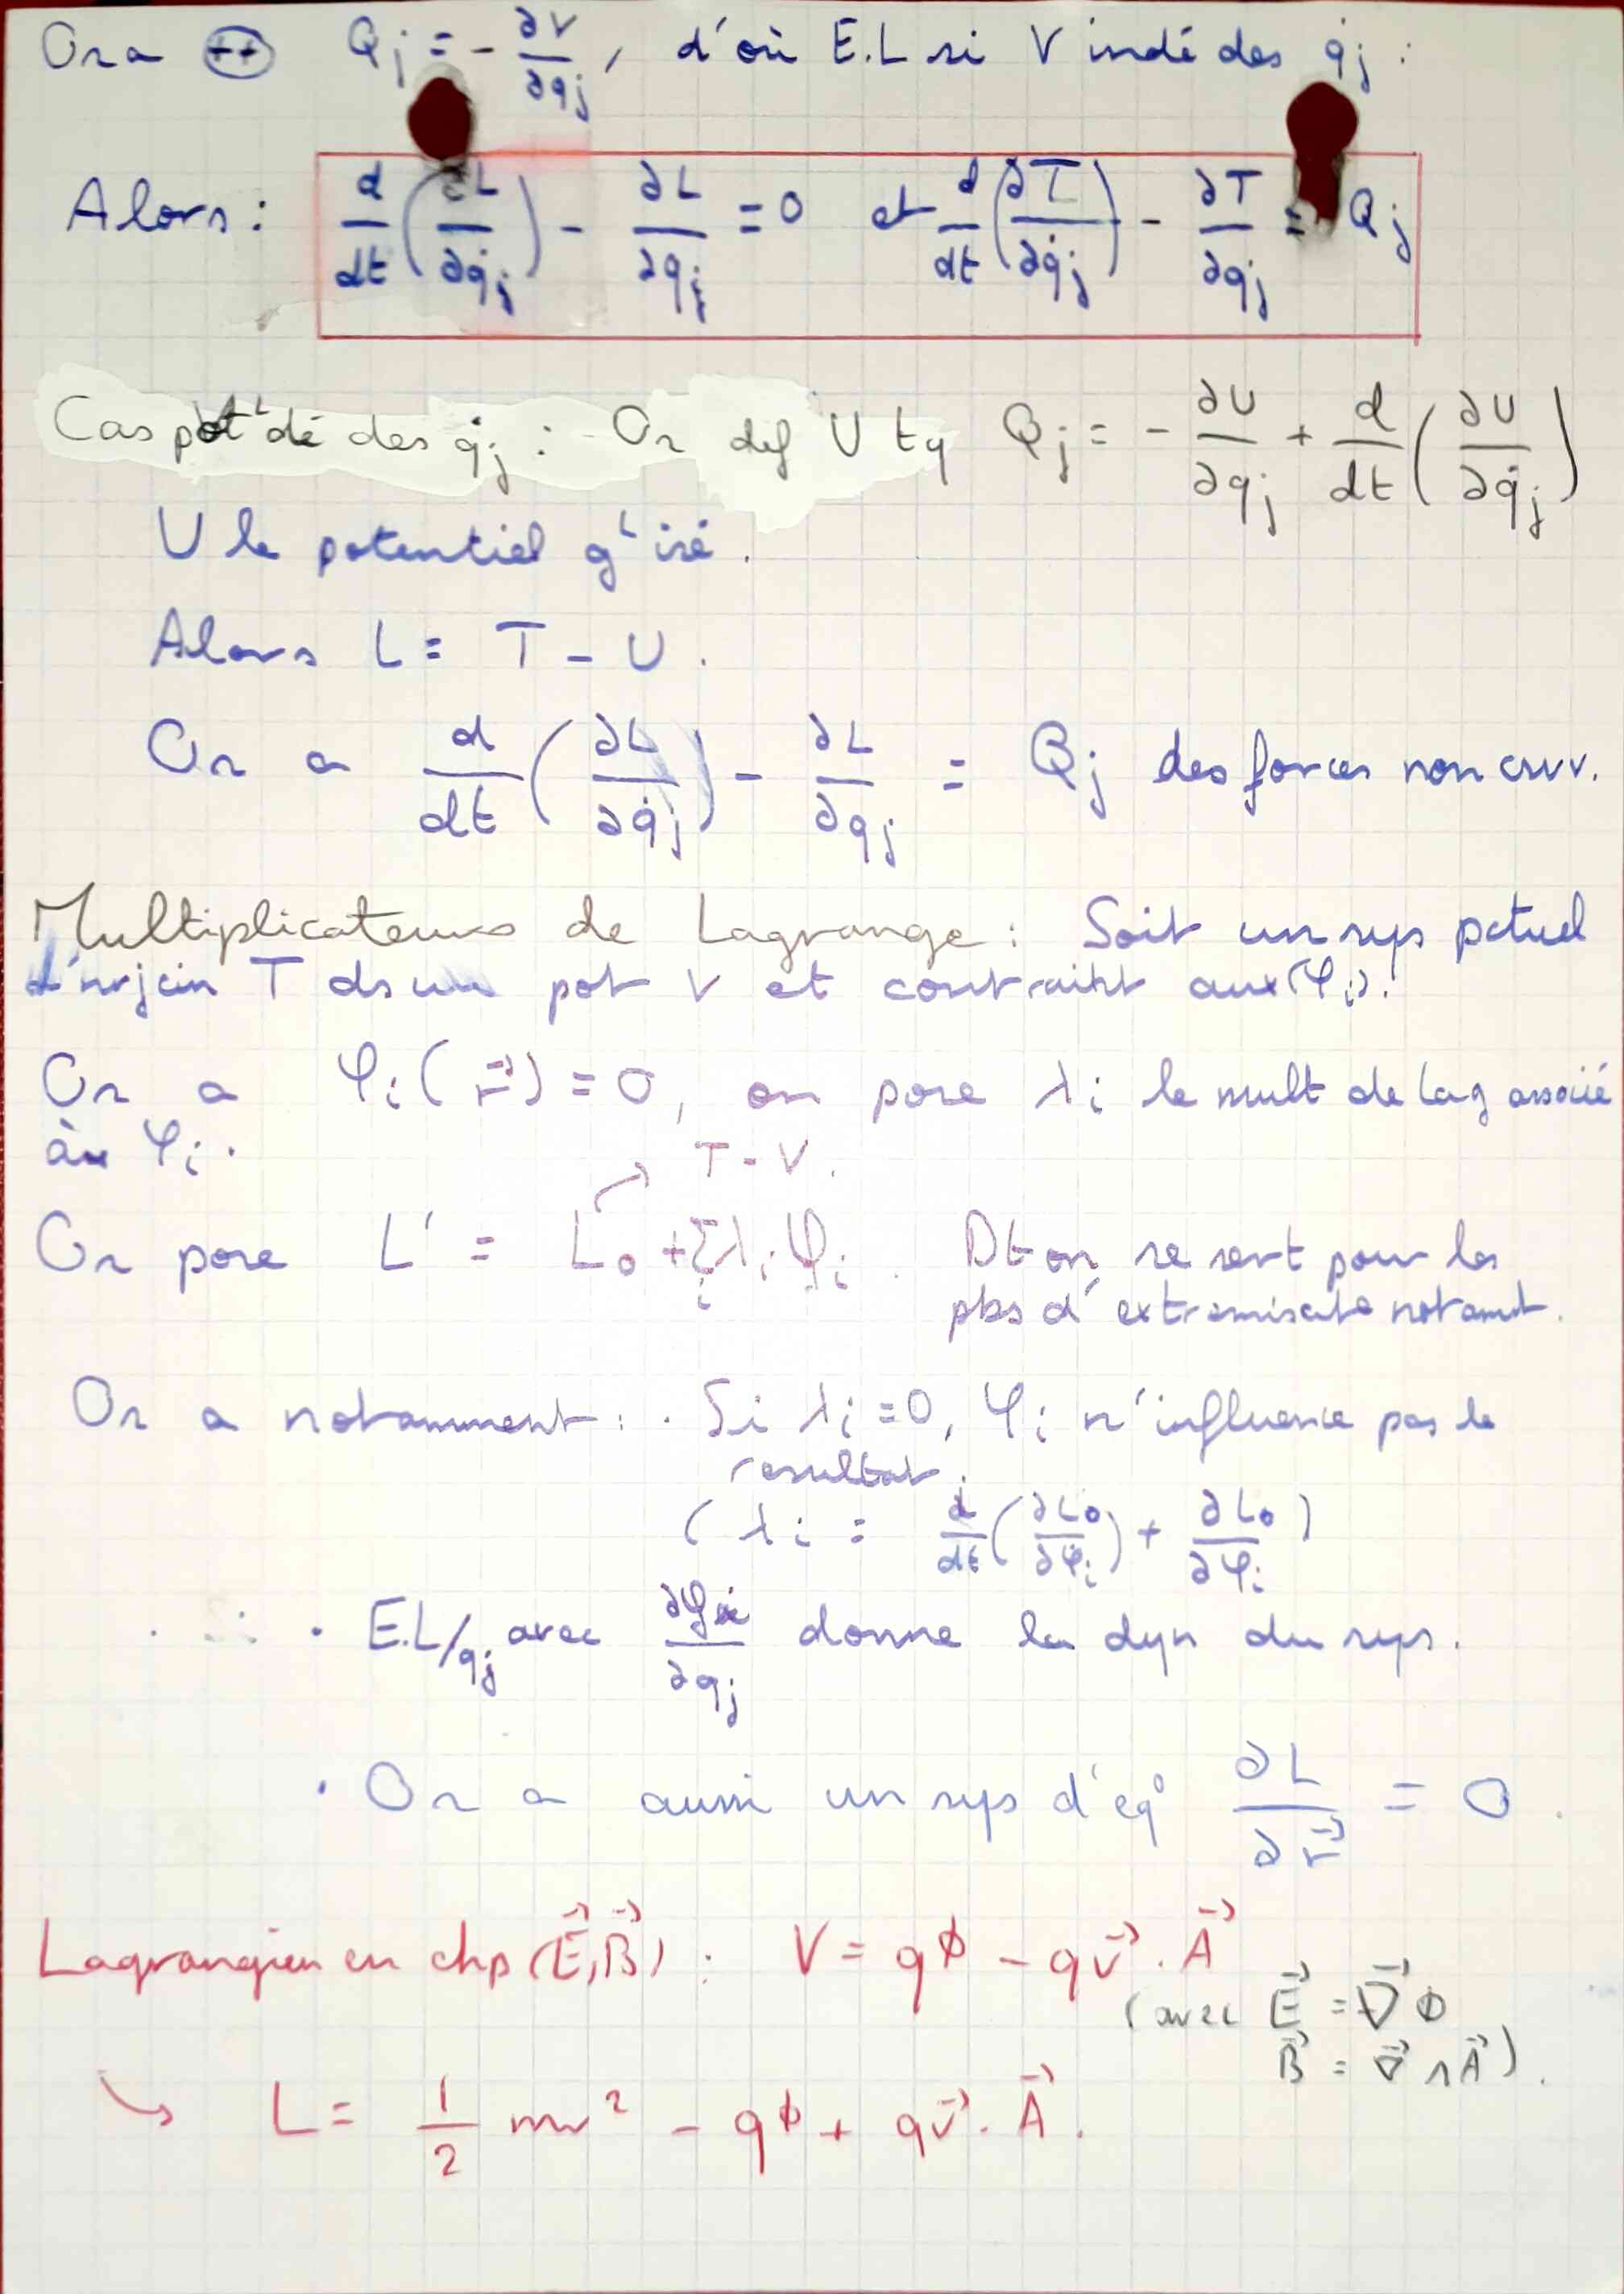 On a ++ Qj = - ∂V/∂qj, d'où E.L si V indé des q̇j :
Alors : d/dt (∂L/∂q̇j) - ∂L/∂qj = 0 et d/dt (∂T/∂q̇j) - ∂T/∂qj = Qj
Cas potᴸ dé des q̇j : On def U tq Qj = - ∂U/∂qj + d/dt (∂U/∂q̇j)
U le potentiel gᴸisé.
Alors L = T - U.
On a d/dt (∂L/∂q̇j) - ∂L/∂qj = Qj des forces non csvv.
Multiplicateurs de Lagrange : Soit un sys
T ds un pot V et contraint aux (φi).
On a φi(r⃗) = 0, on pose λi le mult de Lag associé
à φi.
T - V.
On pose L' = L₀ + Σi λi φi. Dt on se sert pour les
pbs d'extremisat° notamt.
On a notamment : . Si λi = 0, φi n'influence pas le
resultat.
(λi = d/dt (∂L₀/∂φ̇i) + ∂L₀/∂φi)
. E.L/qj avec ∂φi/∂qj donne la dyn du sys.
. On a aussi un sys d'eq° ∂L/∂r⃗ = 0.
Lagrangien en chp (E⃗, B⃗) : V = qϕ - qv⃗ . A⃗
(avec E⃗ = ∇⃗ ϕ
B⃗ = ∇⃗ ∧ A⃗).
↘ L = 1/2 mv² - qϕ + qv⃗ . A⃗.